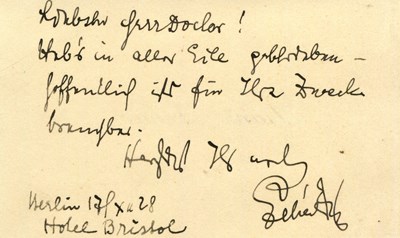 Liebster Herr Doctor!
Hab's in aller Eile geschrieben –
hoffentlich ist's für Ihre Zwecke
brauchbar.
Herzlichst Ihr
Berlin 17/XII 28
Hotel Bristol